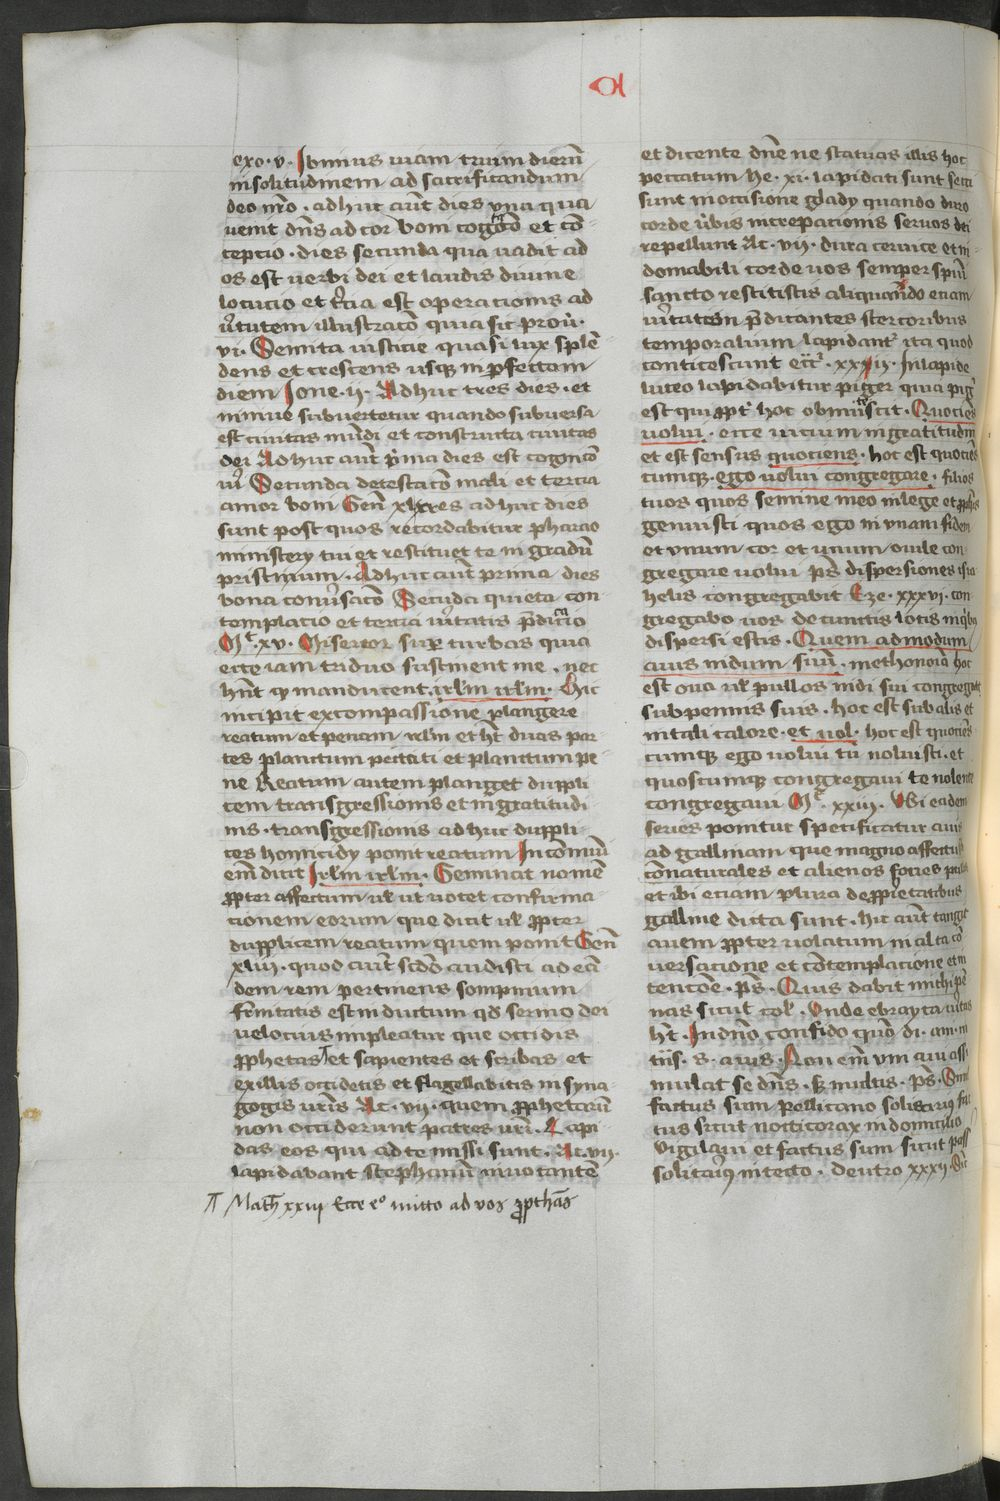 exo · v · Ibimus uiam trium dierũ
in solitudinem ad sacrificandum
deo nr̃o · adhuc aũt dies vna qua
uenit dñs ad cor boni cogitacõ et cõ-
ceptio · dies secunda qua uadit ad
os est uerbi dei et laudis diuine
locucio et t̃cia est operationis ad
ũtutem illustracõ quia sic prou ·
vi · Semita iusticie quasi lux splẽ
dens et crescens usq̃ in p̃fectam
diem Ione · ij · Adhuc tres dies · et
niniue subuertetur quando subuersa
est ciuitas mũdi et constructa ciuitas
dei Adhuc aũt p̃ma dies est cognicõ
ui Secunda detestacõ mali et tercia
amor boni Geñ xl tres adhuc dies
sunt post quos recordabitur pharao
ministery tui et restituet te in gradũ
pristinum · Adhuc aũt prima dies
bona conũsacõ Secunda quieta con-
templacio et tercia ũitatis p̃dicacio
Mᶜ · xv · Misereor sup̃ turbas quia
ecce iam triduo sustinent me · nec
hñt qͥ manducent · irl̃m irl̃m · Hic
incipit ex compassione plangere
reatum et penam irl̃m et hꝫ duas par
tes planctum peccati et planctum pe
ne Reatum autem planget duppli
cem transgressionis et ingratitudi
nis · transgressionis adhuc duppli-
ces homicidy ponit reatum In cõmuni
em̃ dicit Irl̃m irl̃m · Geminat nomẽ
p̃pter affectum ul̃ ut notet confirma
tionem eorum que dicit ul̃ p̃pter
dupplicem reatum quem ponit Geñ
xlij · quod aũt sc̃do audisti ad eã
dem rem pertinens sompnium
firmitatis est indicium qd̃ sermo dei
uelocius impleatur que occidis
p̃phetas et sapientes et scribas et
ex illis occidetis et flagellabitis in syna
gogis ur̃is Ac · vij · quem p̃phetarũ
non occiderunt patres ur̃i · Lapi
das eos qui ad te missi sunt · Ac · vij ·
lapidabant stephanũ inuocantẽ
Math̃ xxiij Ecce eº mitto ad vos p̃phetãs
et dicente dñe ne statuas illis hoc
peccatum he · xi · lapidati sunt secti
sunt in occisione gladij quando duro
corde ũbis increpationis seruos dei
repellunt Ac · vij · dura ceruice et in-
domabili corde uos semper spũi
sancto restitistis aliquando etiam
ũitatem p̃dicantes stercoribus
temporalium lapidantͬ ita quod
conticescunt ecc̃ · xxij · In lapide
luteo lapidabitur piger quia pigͬ
est qui p̃ptͬ hoc obmutescit · Quociẽs
uolui · ecce uicium ingratitudinis
et est sensus quociens · hoc est quociẽs
cumqꝫ · ego uolui congregare · filios
tuos quos semine meo in lege et p̃phis
genuisti quos ego in vnam fidem
et vnum cor et unum ouile con
gregare uolui ps̃ dispersiones isra
helis congregabit Eze · xxxvi · con
gregabo uos de cunctis locis in qͥbꝫ
dispersi estis · Quem admodum
auis nidum suũ · methonomia hoc
est oua ul̃ pullos nidi sui congregat
sub pennis suis · hoc est sub alis et
in tali calore · et nol · hoc est quociẽs
cumqꝫ ego uolui tu noluisti · et
quoscumqꝫ congregaui te nolente
congregaui Mᵗ · xxiij · Vbi eadem
series ponitur specificatur auis
ad gallinam que magno affectu
cõnaturales et alienos fouet pullos
et ibi etiam plura de p̃prietatibus
galline dicta sunt · hic aũt tangit
auem p̃pter uolatum in alta cõ
uersacione et cõtemplacione et in
tencõe · ps̃ · Quis dabit michi pẽ
nas sicut col̃ · Vnde ebrayca ueritas
hꝫ · In dño confido quõ di · am · m
tiis · s · auis · Non em̃ vni aui assi-
mulat se dñs · sꝫ multis · ps̃ · Simil
factus sum pellicano solitarius fac
tus sicut nocticorax in domicilio
Vigilaui et factus sum sicut pass̃
solitariꝰ in tecto · deutro xxxij · Sic̃